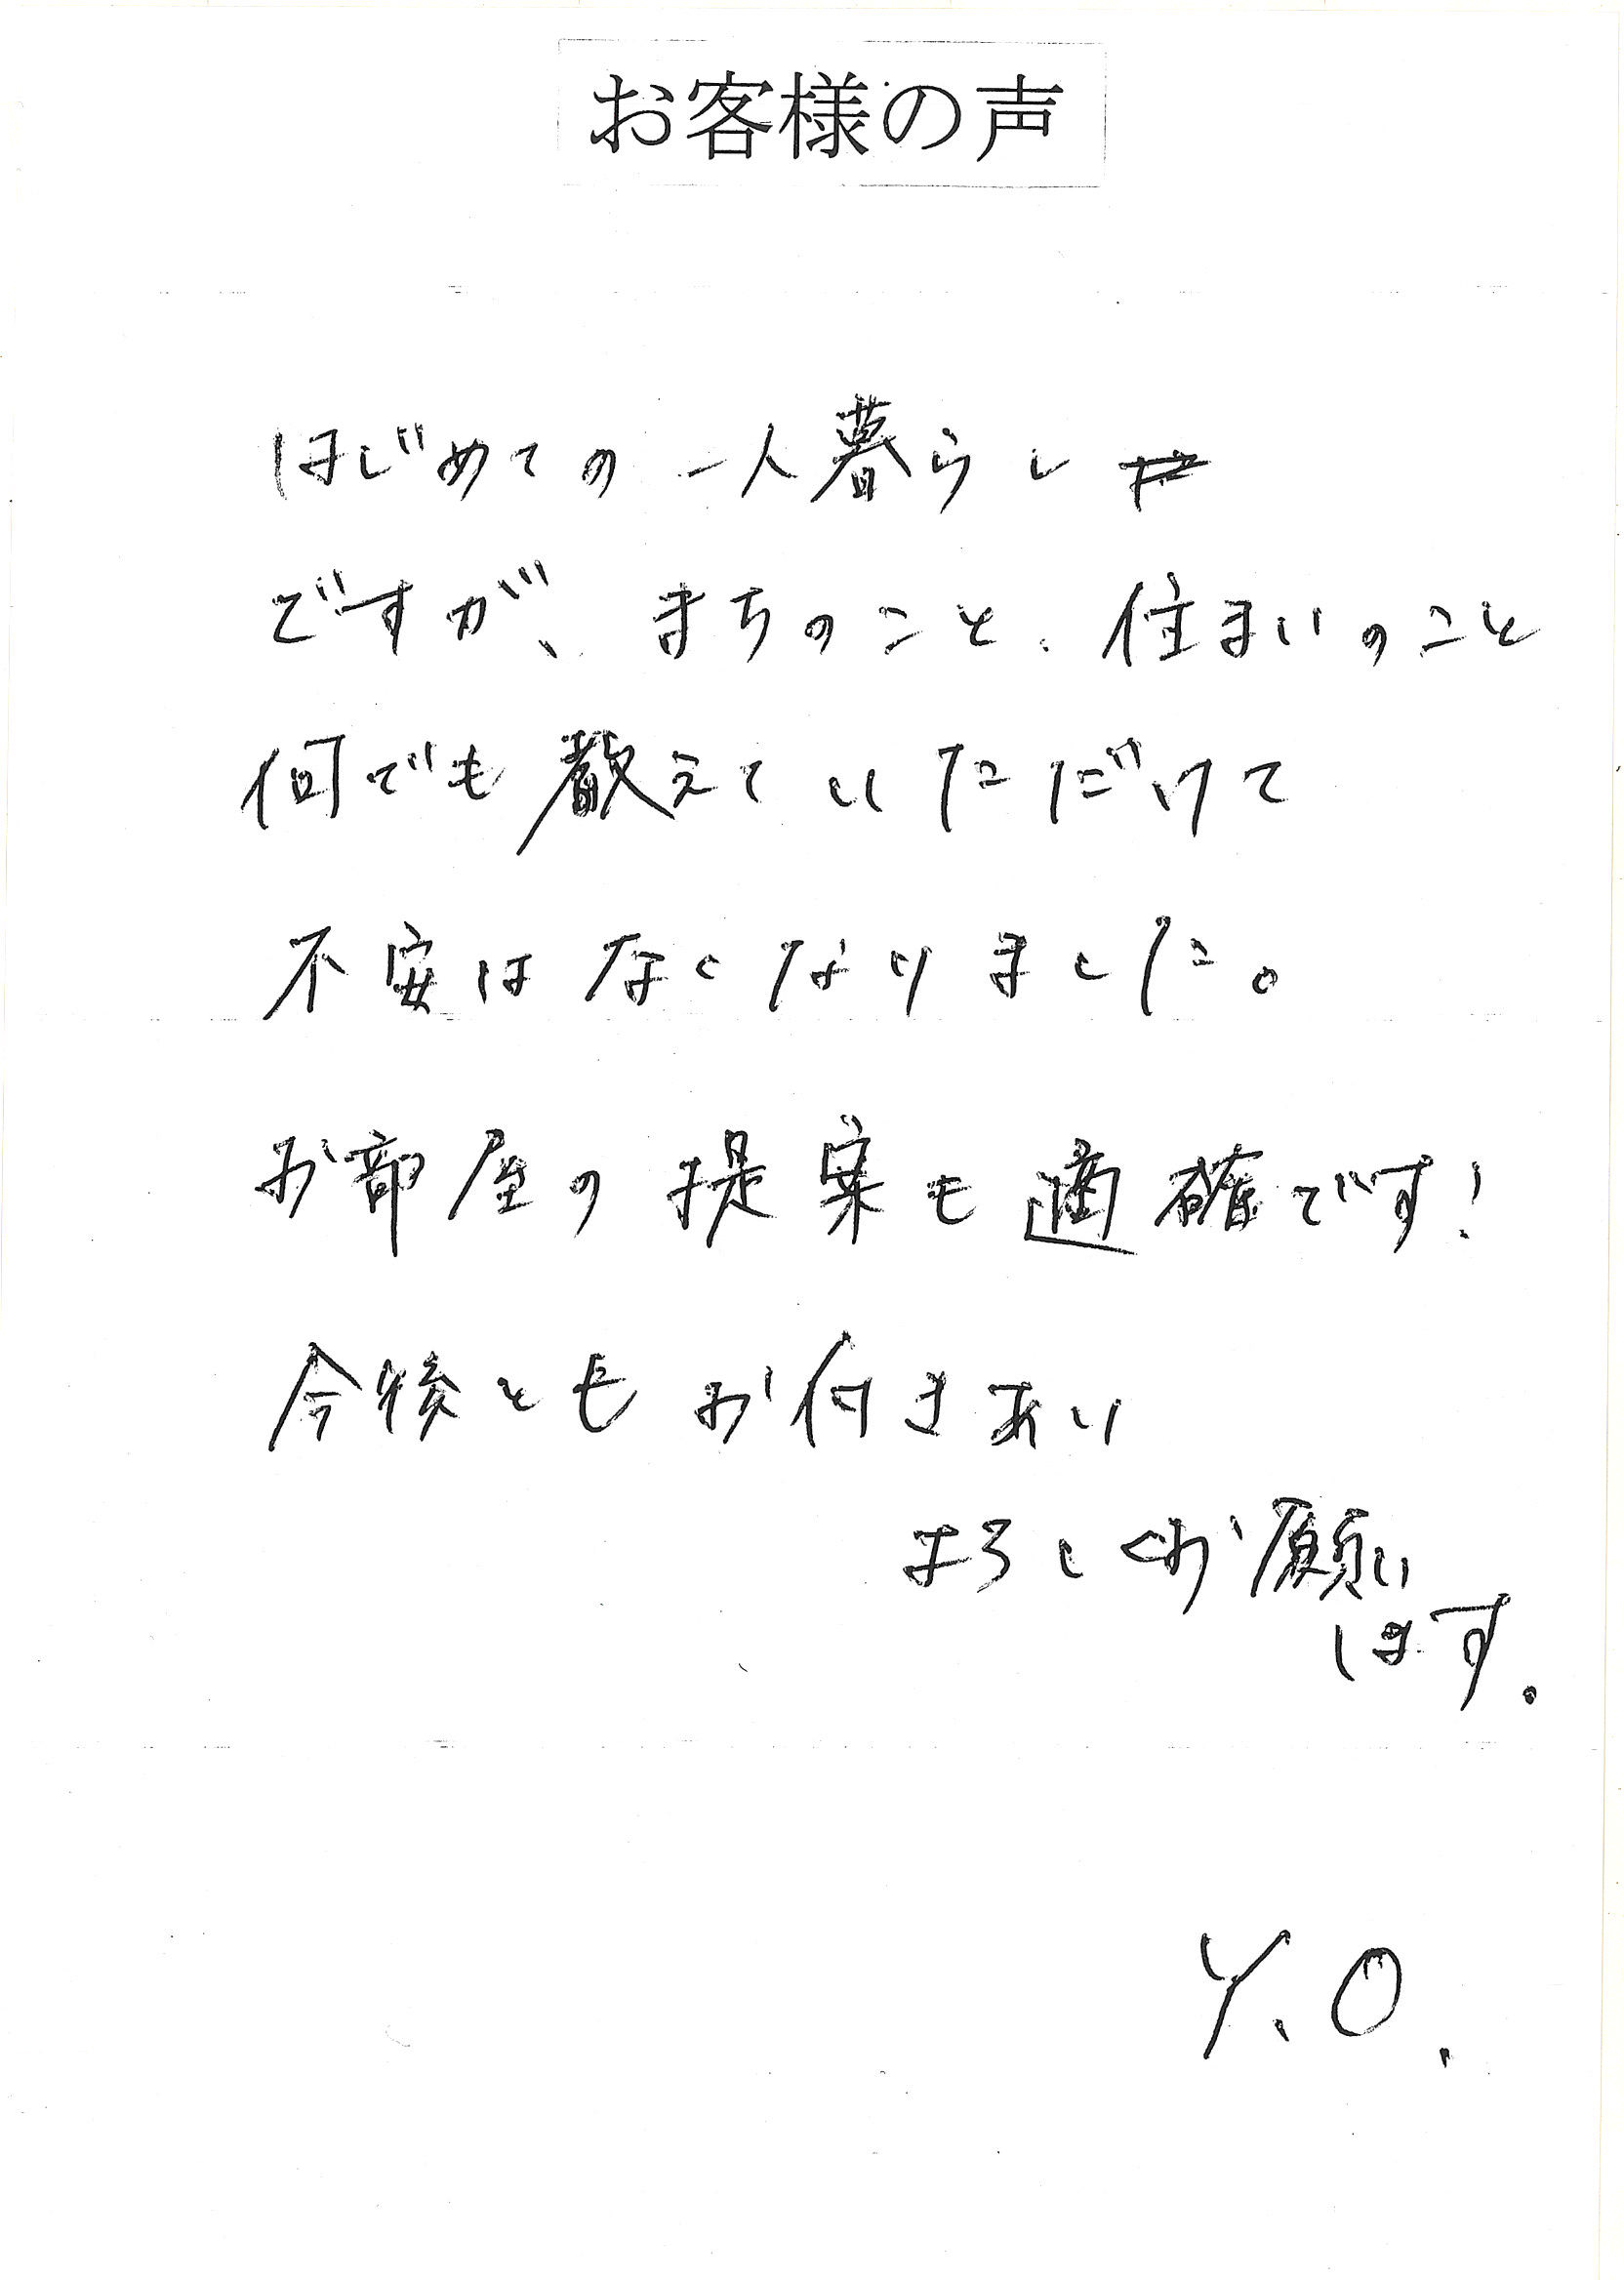 お客様の声
はじめての一人暮らし
ですが、まちのこと、住まいのこと
何でも教えていただけて
不安はなくなりました。
お部屋の提案も適確です!
今後ともお付きあい
よろしくお願い
します。
Y.O.